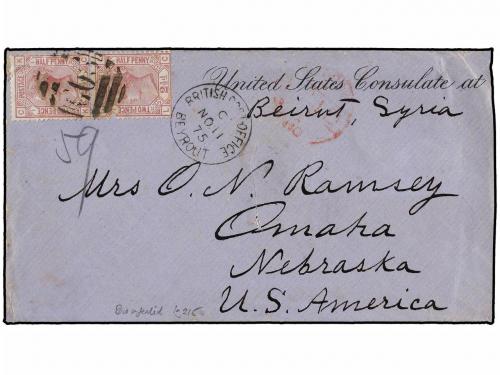 HALF PENNY HALF PENNY
POSTAGE
TWO PENCE
United States Consulate at
Beirut, Syria
BRITISH POST OFFICE
C
NO 11
75
BEYROUT
59
Mrs O. N. Ramsey
Omaha
Nebraska
U.S. America